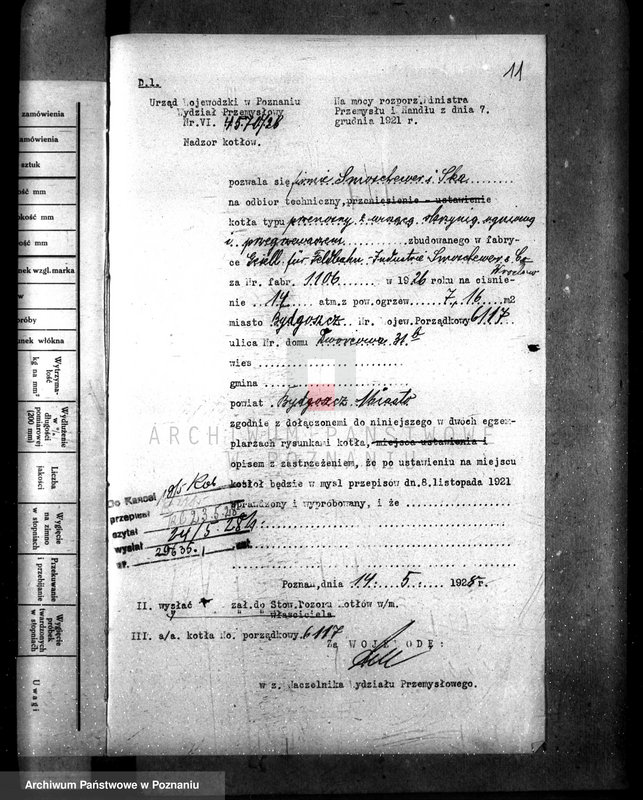 11
D.1.
Urząd Wojewodzki w Poznaniu
Wydział Przemysłowy
Nr.VI. 4570/28
Nadzor kotłów.
Na mocy rozporz. Ministra
Przemysłu i Handlu z dnia 7.
grudnia 1921 r.
pozwala się firmie Smoschewer i Ska
na odbior techniczny, przeniesienie - ustawienie
kotła typu przenośny z wiszącą skrzynią ogniową
i przegrzewaczem zbudowanego w fabry-
ce Gesell. für Feldbahn-Industrie Smoschewer & Co
Wrocław
za Nr. fabr. 1106 w 1926 roku na ciśnie-
nie 14 atm. z pow.ogrzew. 7,16 m2
miasto Bydgoszcz Nr. Wojew.Porządkowy 6117
ulica Nr. domu Dworcowa 31b
wieś
gmina
powiat Bydgoszcz Miasto
zgodnie z dołączonemi do niniejszego w dwoch egzem-
plarzach rysunkami kotła, miejsca ustawienia i
opisem z zastrzeżeniem, że po ustawieniu na miejscu
kotłoł będzie w mysl przepisów dn.8, listopada 1921
sprawdzony i wypróbowany, i że
Do Kancel. 19/5
przepisał 23.5.28
czytał
wysłał 24/5.28
nr. 29635. zał.
Poznań, dnia 14. 5. 1928 r.
II. wysłać zał. do Stow. Dozoru Kotłów w/m.
właściciela
III. a/a. kotła No. porządkowy. 6117
Za WOJEWODĘ:
w z. Naczelnika Wydziału Przemysłowego.
zamówienia
zamówienia
sztuk
ość mm
okość mm
ość mm
nek wzgl. marka
w
próby
unek włókna
Wytrzyma-
łość
kg na mm²
Wydłużenie
w %
długości
pomiarowej
(200 mm)
Liczba
jakości
Wygięcie
na zimno
w stopniach
Przekuwanie
i przebijanie
Wygięcie
próbek
hartowanych
w stopniach
Uwagi
ARCHIWUM PAŃSTWOWE
W POZNANIU
Archiwum Państwowe w Poznaniu